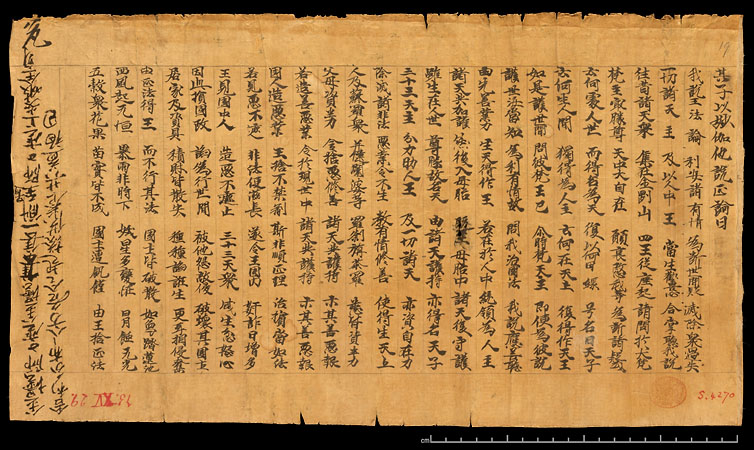 其子以妙伽他說正論曰
我說王法論 利安諸有情 為斷世間疑 滅除衆過失
一切諸天主 及以人中王 當生歡喜心 合掌聽我說
往昔諸天衆 集在金剛山 四王從座起 請問於大梵
梵主最勝尊 天中大自在 願哀愍我等 為斷諸疑惑
云何處人世 而得名為天 復以何因緣 号名曰天子
云何生人間 獨得為人主 云何在天上 復得作天王
如是護世間 問彼梵王已 尒時梵天主 即便為彼說
護世汝當知 為利有情故 問我治國法 我說應善聽
由先善業力 生天得作王 若在於人中 統領為人主
諸天共加護 然後入母胎 既至母胎中 諸天復守護
雖生在人世 尊勝故名天 由諸天護持 亦得名天子
三十三天主 分力助人王 及一切諸天 亦資自在力
除滅諸非法 惡業令不生 教有情修善 使得生天上
人及蘇羅衆 并揵闥婆等 羅刹旃荼羅 悉皆資半力
父母資半力 令捨惡修善 諸天共護持 示其善惡報
若造善惡業 令於現世中 諸天共護持 示其善惡報
國人造惡業 王捨不禁制 斯非順正理 治擯當如法
若見惡不遮 非法便滋長 遂令王國內 姧詐日增多
王見國中人 造惡不遮止 三十三天衆 咸生忿怒心
因此損國政 諂為行世間 被他怨敵侵 破壞其國土
居家及資具 積財皆散失 種種諂誑生 更互相侵奪
由正法得王 而不行其法 國土皆破散 如象踏蓮池
惡風起无恒 暴雨非時下 妖星多變怪 日月蝕无光
五穀衆花果 苗實皆不成 國土遭飢饉 由王捨正法
19
S.4270
cm